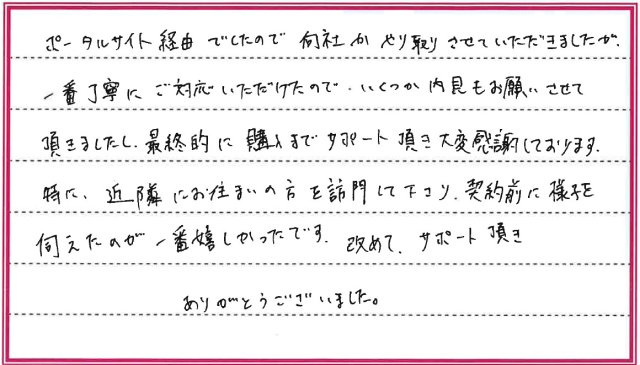 ポータルサイト経由でしたので何社かやり取りさせていただきましたが、
一番丁寧にご対応いただけたので、いくつか内見もお願いさせて
頂きましたし、最終的に購入までサポート頂き大変感謝しております。
特に、近隣にお住まいの方を訪問して下さり、契約前に様子を
伺えたのが一番嬉しかったです。改めて、サポート頂き
ありがとうございました。